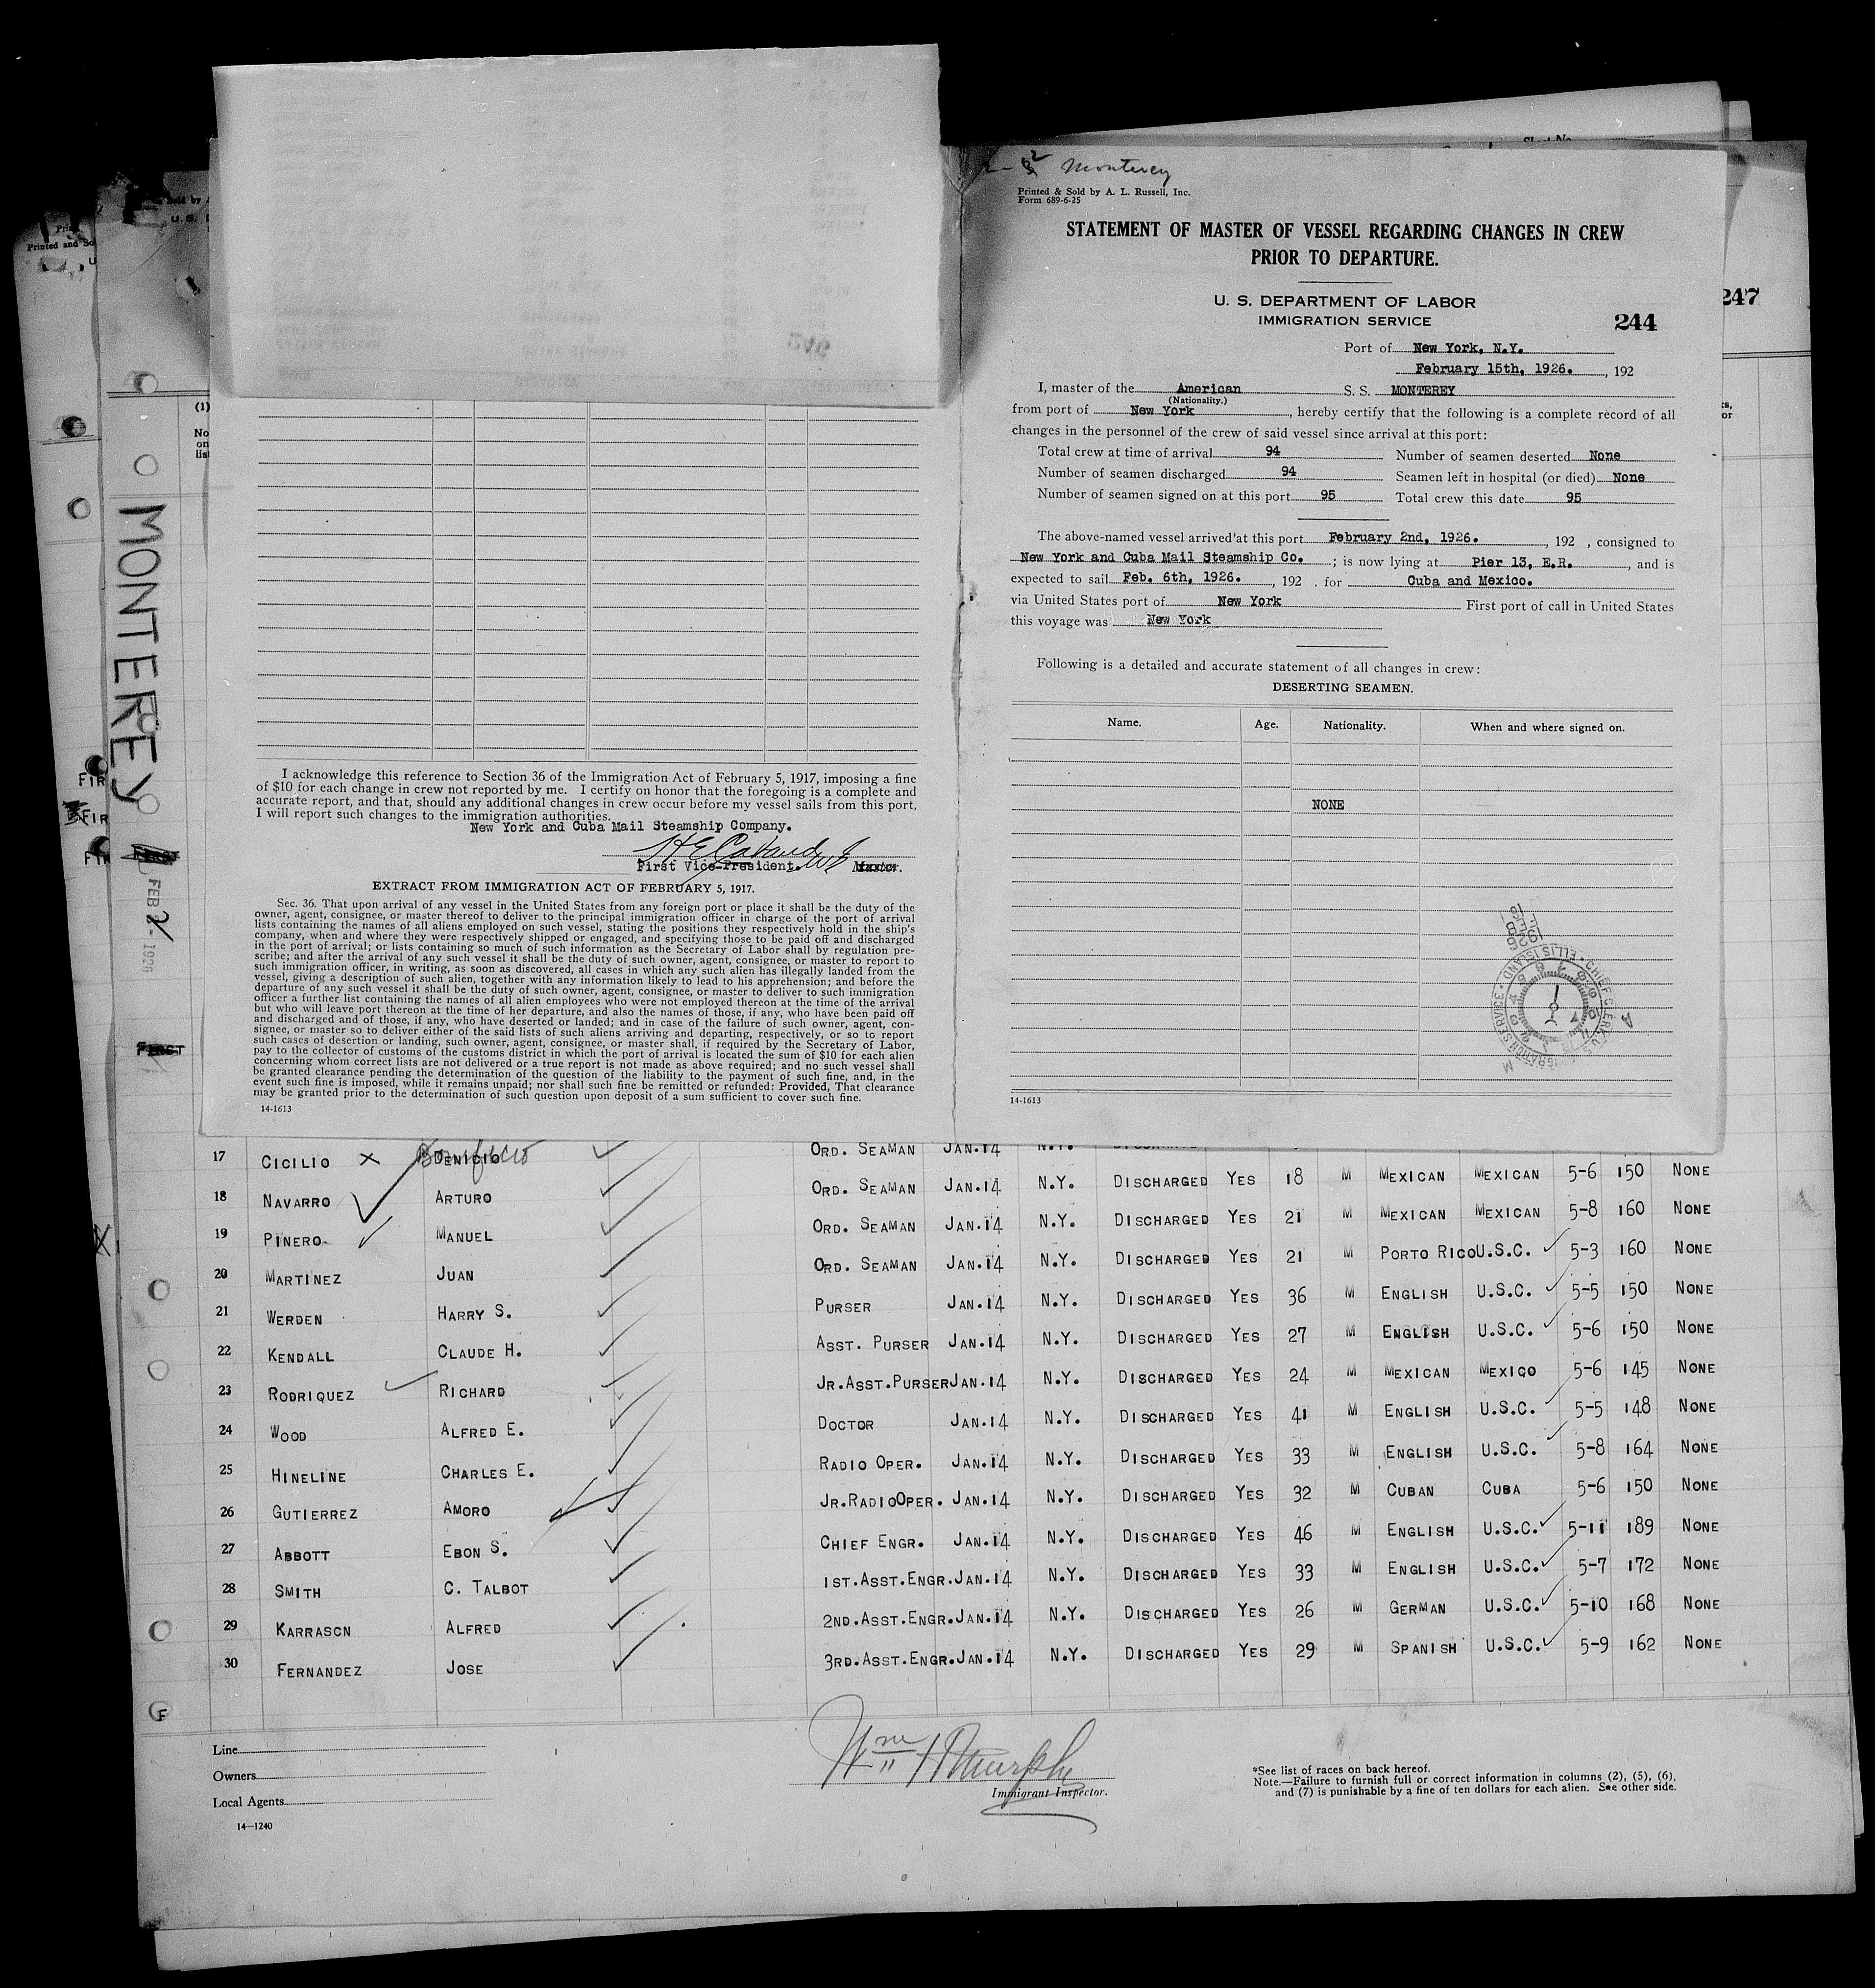 2 Monterey
Printed & Sold by A. L. Russell, Inc.
Form 689-6-25
STATEMENT OF MASTER OF VESSEL REGARDING CHANGES IN CREW
PRIOR TO DEPARTURE.
U. S. DEPARTMENT OF LABOR
IMMIGRATION SERVICE
247
244
Port of New York, N.Y.
February 15th, 1926. , 192
I, master of the American S. S. MONTEREY
(Nationality.)
from port of New York , hereby certify that the following is a complete record of all
changes in the personnel of the crew of said vessel since arrival at this port:
Total crew at time of arrival 94 Number of seamen deserted None
Number of seamen discharged 94 Seamen left in hospital (or died) None
Number of seamen signed on at this port 95 Total crew this date 95
The above-named vessel arrived at this port February 2nd, 1926. , 192 , consigned to
New York and Cuba Mail Steamship Co. ; is now lying at Pier 13, E.R. , and is
expected to sail Feb. 6th, 1926. , 192 . for Cuba and Mexico.
via United States port of New York First port of call in United States
this voyage was New York
Following is a detailed and accurate statement of all changes in crew:
DESERTING SEAMEN.
Name. Age. Nationality. When and where signed on.
NONE
14-1613
Printed and So
(1)
No
on
list
MONTEREY
FEB 2 - 1926
FIRST
I acknowledge this reference to Section 36 of the Immigration Act of February 5, 1917, imposing a fine
of $10 for each change in crew not reported by me. I certify on honor that the foregoing is a complete and
accurate report, and that, should any additional changes in crew occur before my vessel sails from this port,
I will report such changes to the immigration authorities.
New York and Cuba Mail Steamship Company.
First Vice-President. Master.
EXTRACT FROM IMMIGRATION ACT OF FEBRUARY 5, 1917.
Sec. 36. That upon arrival of any vessel in the United States from any foreign port or place it shall be the duty of the
owner, agent, consignee, or master thereof to deliver to the principal immigration officer in charge of the port of arrival
lists containing the names of all aliens employed on such vessel, stating the positions they respectively hold in the ship's
company, when and where they were respectively shipped or engaged, and specifying those to be paid off and discharged
in the port of arrival; or lists containing so much of such information as the Secretary of Labor shall by regulation pre-
scribe; and after the arrival of any such vessel it shall be the duty of such owner, agent, consignee, or master to report to
such immigration officer, in writing, as soon as discovered, all cases in which any such alien has illegally landed from the
vessel, giving a description of such alien, together with any information likely to lead to his apprehension; and before the
departure of any such vessel it shall be the duty of such owner, agent, consignee, or master to deliver to such immigration
officer a further list containing the names of all alien employees who were not employed thereon at the time of the arrival
but who will leave port thereon at the time of her departure, and also the names of those, if any, who have been paid off
and discharged and of those, if any, who have deserted or landed; and in case of the failure of such owner, agent, con-
signee, or master so to deliver either of the said lists of such aliens arriving and departing, respectively, or so to report
such cases of desertion or landing, such owner, agent, consignee, or master shall, if required by the Secretary of Labor,
pay to the collector of customs of the customs district in which the port of arrival is located the sum of $10 for each alien
concerning whom correct lists are not delivered or a true report is not made as above required; and no such vessel shall
be granted clearance pending the determination of the question of the liability to the payment of such fine, and, in the
event such fine is imposed, while it remains unpaid; nor shall such fine be remitted or refunded: Provided, That clearance
may be granted prior to the determination of such question upon deposit of a sum sufficient to cover such fine.
14-1613
17 CICILIO X DENICIO Bonifacio ORD. SEAMAN JAN.14 N.Y. DISCHARGED YES 18 M MEXICAN MEXICAN 5-6 150 NONE
18 NAVARRO ARTURO ORD. SEAMAN JAN.14 N.Y. DISCHARGED YES 21 M MEXICAN MEXICAN 5-8 160 NONE
19 PINERO MANUEL ORD. SEAMAN JAN.14 N.Y. DISCHARGED YES 21 M PORTO RICO U.S.C. 5-3 160 NONE
20 MARTINEZ JUAN ORD. SEAMAN JAN.14 N.Y. DISCHARGED YES 36 M ENGLISH U.S.C. 5-5 150 NONE
21 WERDEN HARRY S. PURSER JAN.14 N.Y. DISCHARGED YES 27 M ENGLISH U.S.C. 5-6 150 NONE
22 KENDALL CLAUDE H. ASST. PURSER JAN.14 N.Y. DISCHARGED YES 24 M MEXICAN MEXICO 5-6 145 NONE
23 RODRIQUEZ RICHARD JR.ASST.PURSER JAN.14 N.Y. DISCHARGED YES 41 M ENGLISH U.S.C. 5-5 148 NONE
24 WOOD ALFRED E. DOCTOR JAN.14 N.Y. DISCHARGED YES 33 M ENGLISH U.S.C. 5-8 164 NONE
25 HINELINE CHARLES E. RADIO OPER. JAN.14 N.Y. DISCHARGED YES 32 M CUBAN CUBA 5-6 150 NONE
26 GUTIERREZ AMORO JR.RADIO OPER. JAN.14 N.Y. DISCHARGED YES 46 M ENGLISH U.S.C. 5-11 189 NONE
27 ABBOTT EBON S. CHIEF ENGR. JAN.14 N.Y. DISCHARGED YES 33 M ENGLISH U.S.C. 5-7 172 NONE
28 SMITH C. TALBOT 1ST.ASST.ENGR. JAN.14 N.Y. DISCHARGED YES 26 M GERMAN U.S.C. 5-10 168 NONE
29 KARRASCN ALFRED 2ND.ASST.ENGR. JAN.14 N.Y. DISCHARGED YES 29 M SPANISH U.S.C. 5-9 162 NONE
30 FERNANDEZ JOSE 3RD.ASST.ENGR. JAN.14 N.Y.
Line
Owners
Local Agents
14—1240
Wm H Murphy
Immigrant Inspector.
*See list of races on back hereof.
Note.—Failure to furnish full or correct information in columns (2), (5), (6),
and (7) is punishable by a fine of ten dollars for each alien. See other side.